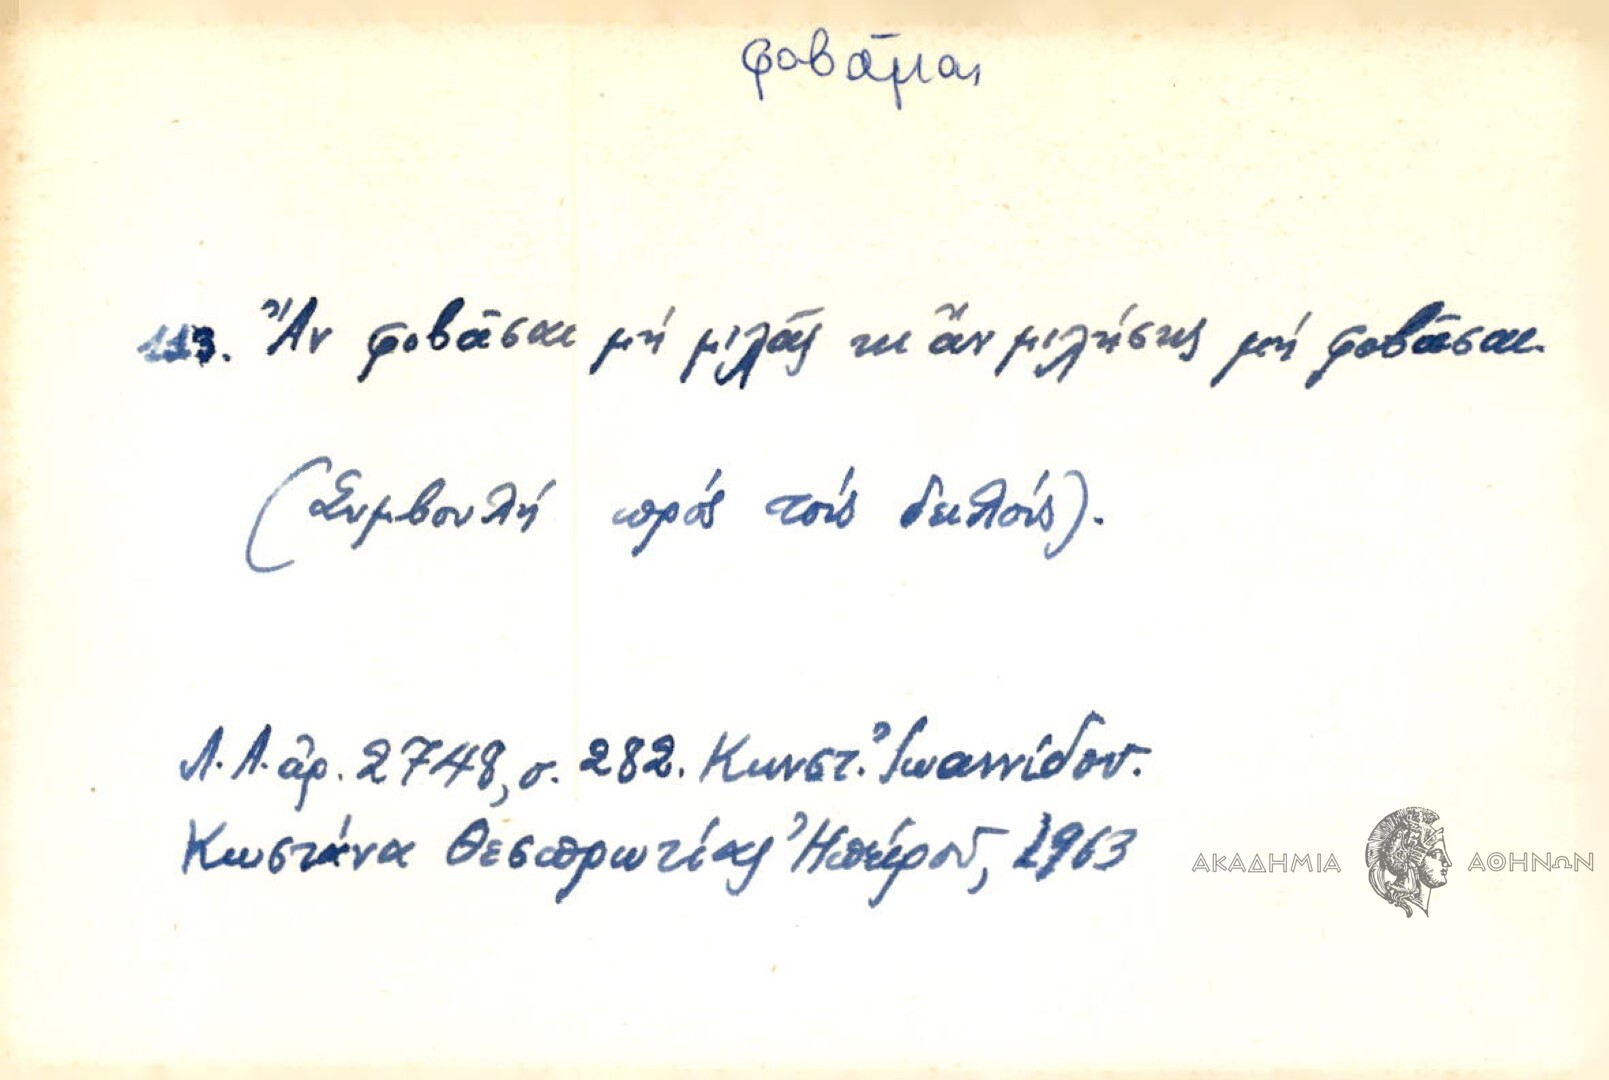 φοβᾶμαι
113. Ἄν φοβᾶσαι μή μιλᾶς κι ἄν μιλήσῃς μή φοβᾶσαι.
(Συμβουλή πρός τούς δειλούς).
Λ.Α. ἀρ. 2748, σ. 282. Κωνστ. Ἰωαννίδου.
Κωστάνα Θεσπρωτίας Ἠπείρου, 1963
ΑΚΑΔΗΜΙΑ ΑΘΗΝΩΝ